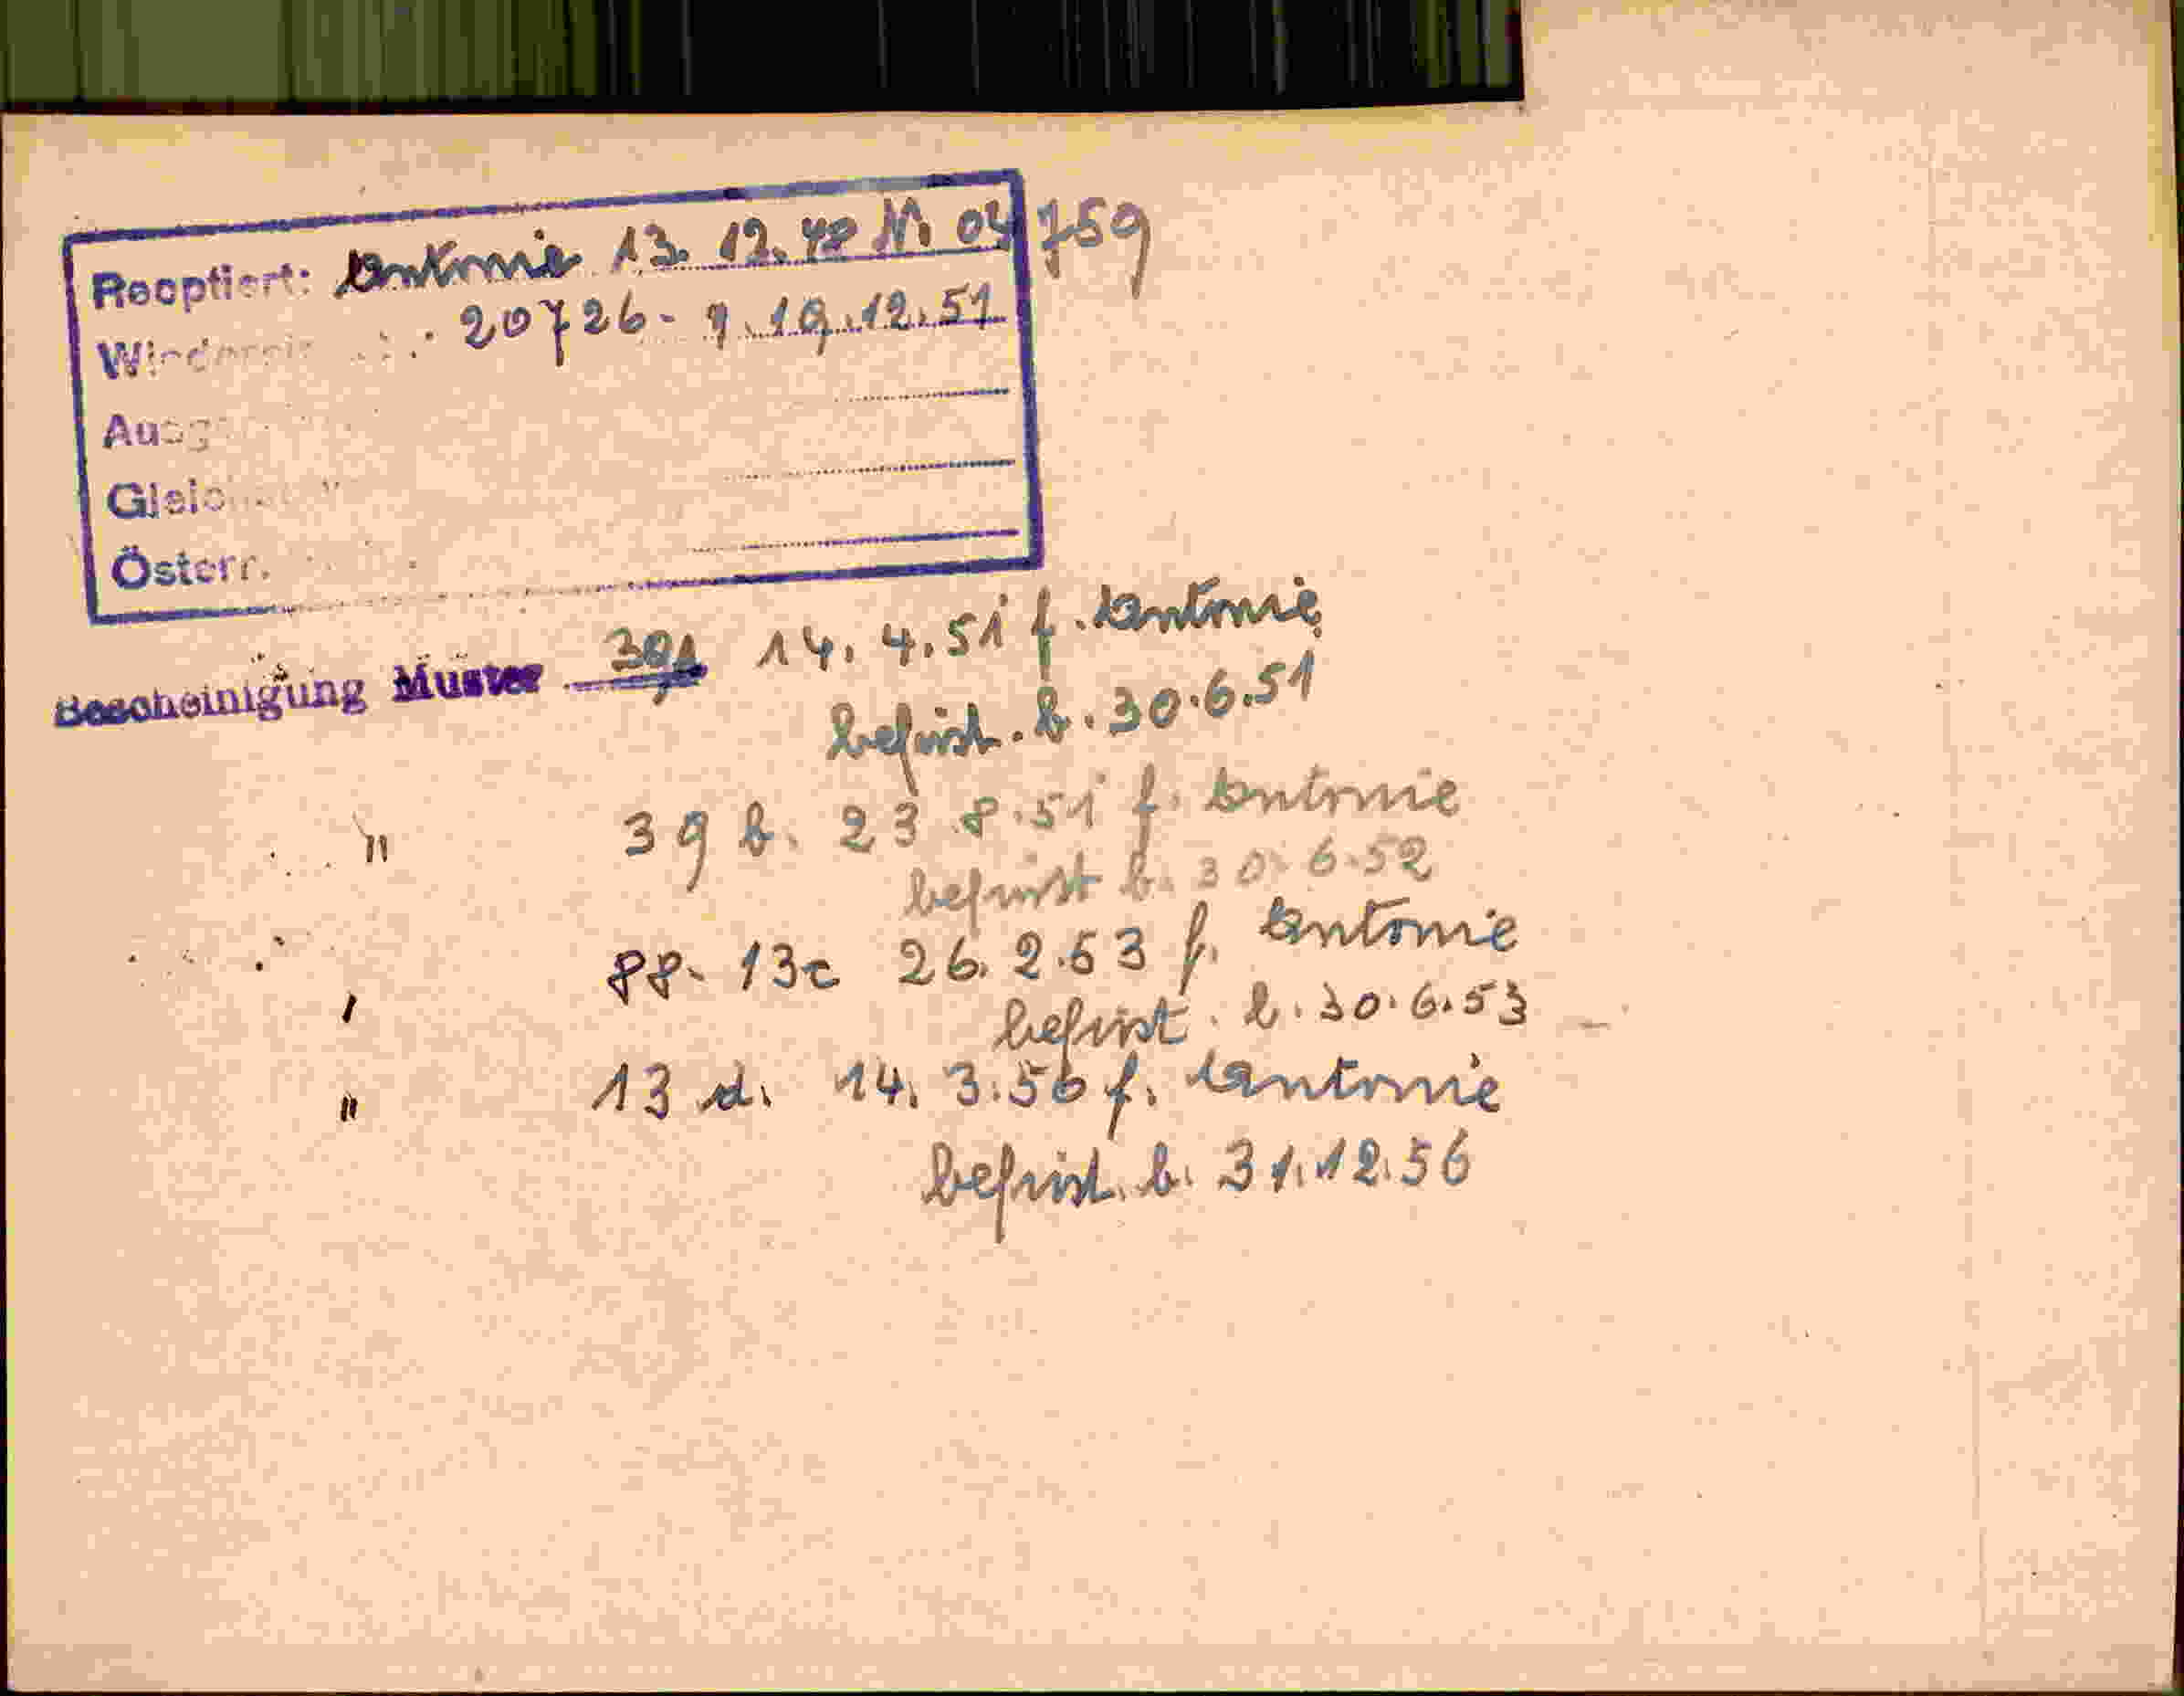 Reoptiert: Antonie 13. 12. 48 N. 04759
20726- 9. 19.12.51
Österr.
Bescheinigung Muster 39a 14. 4. 51 f. Antonie
befrist. b. 30.6.51
" 39 b. 23.8.51 f. Antonie
befrist b. 30.6.52
88- 13c 26. 2.53 f. Antonie
befrist. b. 30.6.53
" 13 d. 14. 3.56 f. Antonie
befrist. b. 31.12.56